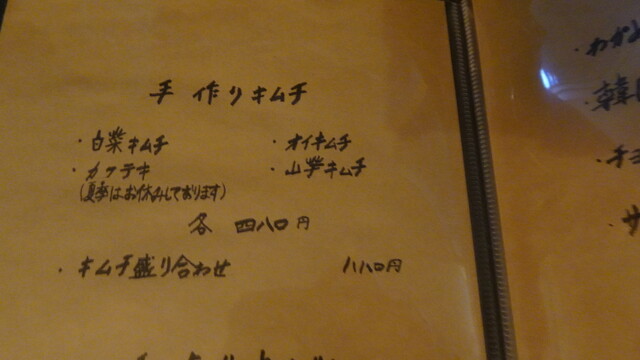 手作りキムチ
・白菜キムチ ・オイキムチ
・カクテキ ・山芋キムチ
(夏季はお休みしております)
各 四八〇円
・キムチ盛り合わせ 八八〇円
・わかめ
・韓国
・チヂ
・サ